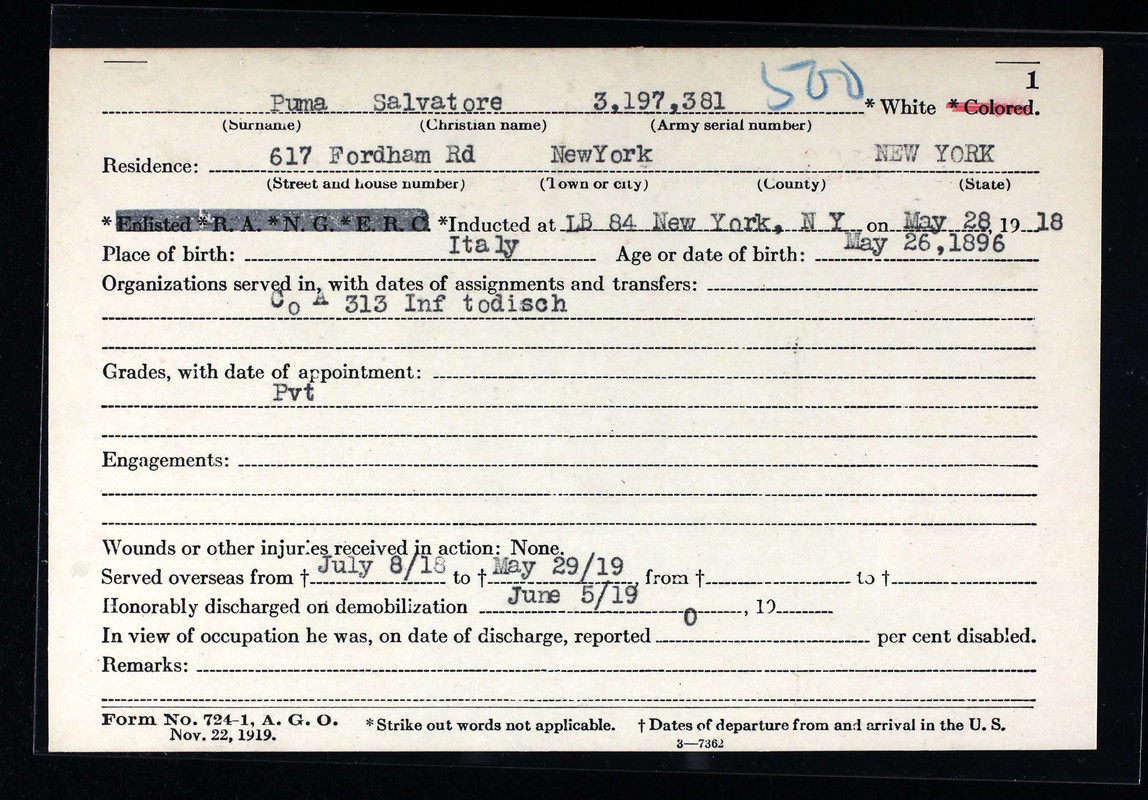 1
Puma Salvatore 3,197,381 500 * White * Colored.
(Surname) (Christian name) (Army serial number)
Residence: 617 Fordham Rd NewYork NEW YORK
(Street and house number) (Town or city) (County) (State)
* Enlisted * R. A. * N. G. * E. R. C. *Inducted at LB 84 New York, N Y on May 28 19 18
Place of birth: Italy Age or date of birth: May 26,1896
Organizations served in, with dates of assignments and transfers:
Co A 313 Inf todisch
Grades, with date of appointment:
Pvt
Engagements:
Wounds or other injuries received in action: None.
Served overseas from † July 8/18 to † May 29/19, from † to †
Honorably discharged on demobilization June 5/19, 19
In view of occupation he was, on date of discharge, reported 0 per cent disabled.
Remarks:
Form No. 724-1, A. G. O. * Strike out words not applicable. † Dates of departure from and arrival in the U. S.
Nov. 22, 1919. 3—7362